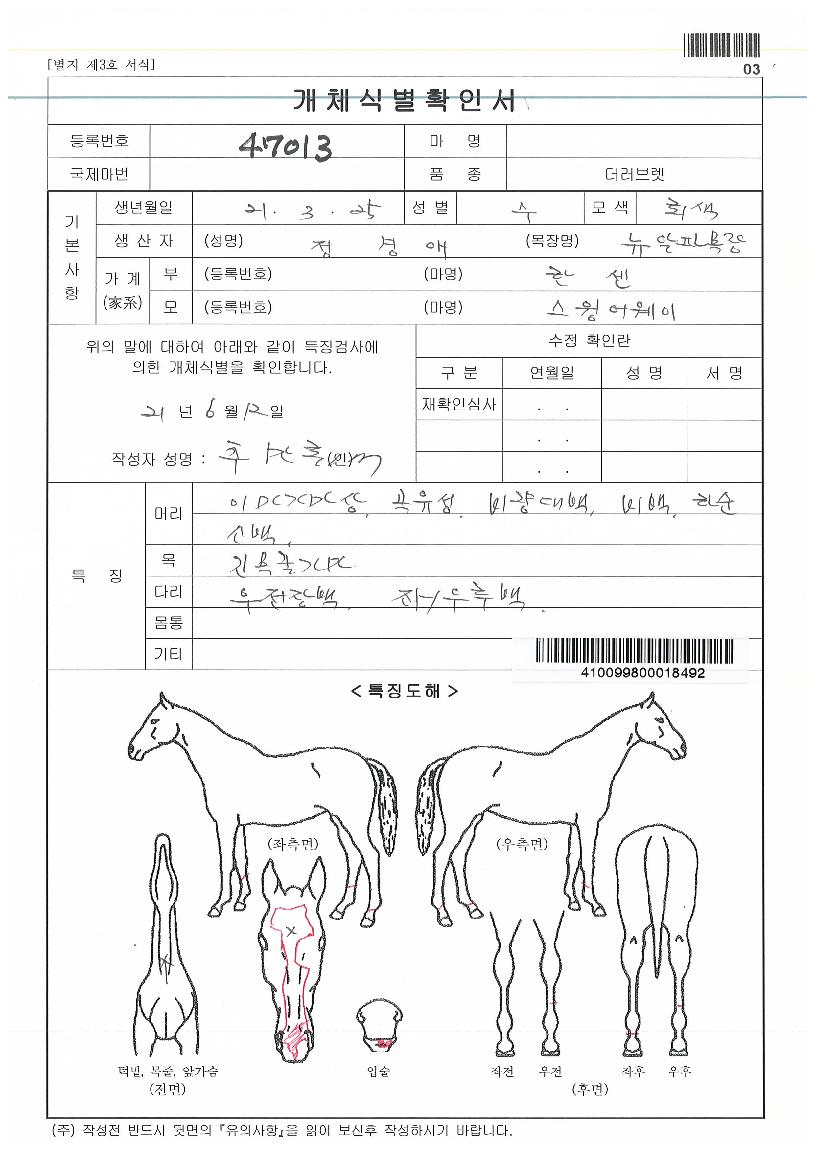 [별지 제3호 서식]
03
개체식별확인서
등록번호 47013 마 명
국제마번 품 종 더러브렛
기본사항
생년월일 21 . 3 . 25 성 별 수 모 색 회색
생 산 자 (성명) 정 성 애 (목장명) 뉴 알파목장
가 계 (家系) 부 (등록번호) (마명) 한 센
모 (등록번호) (마명) 스윙어웨이
위의 말에 대하여 아래와 같이 특징검사에
의힌 개체식별을 확인합니다.
수정 확인란
구 분 연월일 성 명 서 명
재확인심사 . .
. .
. .
21 년 6 월 12 일
작성자 성명 : (인)
특 징
머리 곡유성, 비량대백, 비백, 하순
목
다리 우전장백, 좌/우후백.
몸통
기티
410099800018492
< 특징도해 >
(좌측면) (우측면)
턱밑, 목줄, 앞가슴 입술 좌전 우전 좌후 우후
(전면) (후면)
(주) 작성전 반드시 뒷면의 『유의사항』을 읽어 보신후 작성하시기 바랍니다.